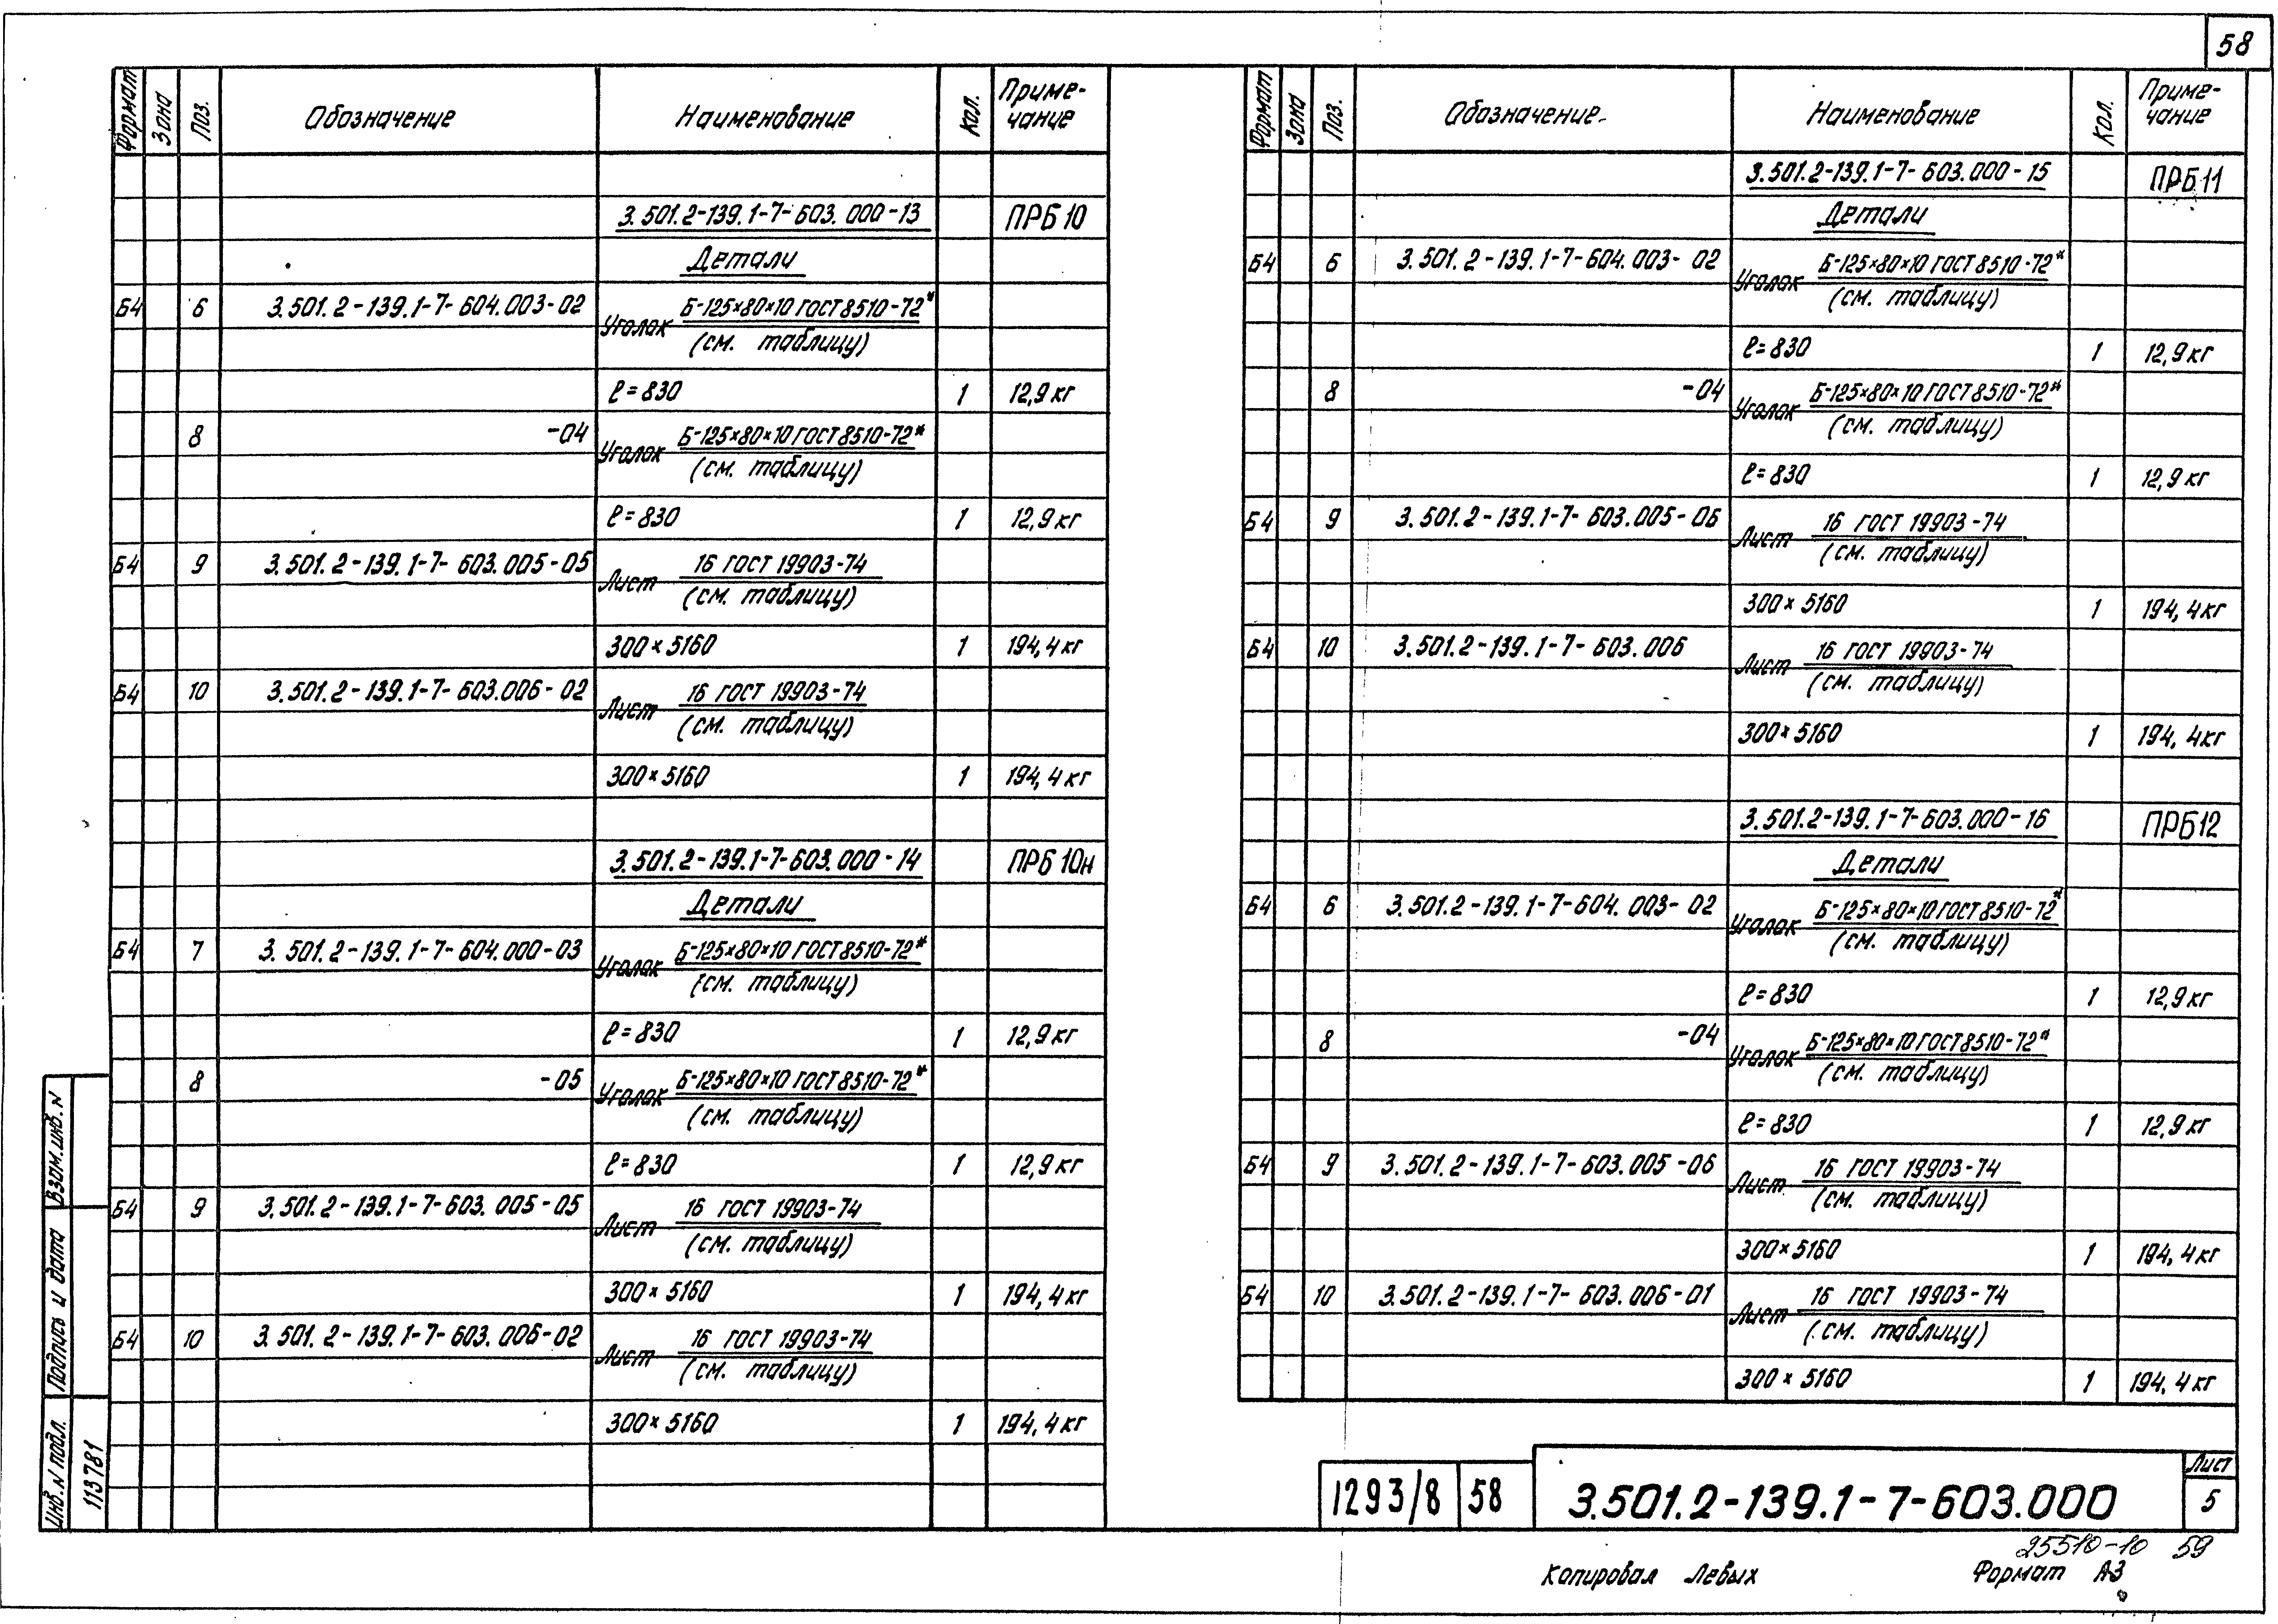 58
Формат Зона Поз. Обозначение Наименование Кол. Приме-
чание
3.501.2-139.1-7-603.000-13 ПРБ 10
Детали
Б4 6 3.501.2-139.1-7-604.003-02 Уголок Б-125×80×10 ГОСТ 8510-72*
(см. таблицу)
ℓ=830 1 12,9 кг
8 -04 Уголок Б-125×80×10 ГОСТ 8510-72*
(см. таблицу)
ℓ=830 1 12,9 кг
Б4 9 3.501.2-139.1-7-603.005-05 Лист 16 ГОСТ 19903-74
(см. таблицу)
300×5160 1 194,4 кг
Б4 10 3.501.2-139.1-7-603.006-02 Лист 16 ГОСТ 19903-74
(см. таблицу)
300×5160 1 194,4 кг
3.501.2-139.1-7-603.000-14 ПРБ 10н
Детали
Б4 7 3.501.2-139.1-7-604.000-03 Уголок Б-125×80×10 ГОСТ 8510-72*
(см. таблицу)
ℓ=830 1 12,9 кг
8 -05 Уголок Б-125×80×10 ГОСТ 8510-72*
(см. таблицу)
ℓ=830 1 12,9 кг
Б4 9 3.501.2-139.1-7-603.005-05 Лист 16 ГОСТ 19903-74
(см. таблицу)
300×5160 1 194,4 кг
Б4 10 3.501.2-139.1-7-603.006-02 Лист 16 ГОСТ 19903-74
(см. таблицу)
300×5160 1 194,4 кг
Формат Зона Поз. Обозначение Наименование Кол. Приме-
чание
3.501.2-139.1-7-603.000-15 ПРБ11
Детали
Б4 6 3.501.2-139.1-7-604.003-02 Уголок Б-125×80×10 ГОСТ 8510-72*
(см. таблицу)
ℓ=830 1 12,9 кг
8 -04 Уголок Б-125×80×10 ГОСТ 8510-72*
(см. таблицу)
ℓ=830 1 12,9 кг
Б4 9 3.501.2-139.1-7-603.005-06 Лист 16 ГОСТ 19903-74
(см. таблицу)
300×5160 1 194,4 кг
Б4 10 3.501.2-139.1-7-603.006 Лист 16 ГОСТ 19903-74
(см. таблицу)
300×5160 1 194,4 кг
3.501.2-139.1-7-603.000-16 ПРБ12
Детали
Б4 6 3.501.2-139.1-7-604.003-02 Уголок Б-125×80×10 ГОСТ 8510-72*
(см. таблицу)
ℓ=830 1 12,9 кг
8 -04 Уголок Б-125×80×10 ГОСТ 8510-72*
(см. таблицу)
ℓ=830 1 12,9 кг
Б4 9 3.501.2-139.1-7-603.005-06 Лист 16 ГОСТ 19903-74
(см. таблицу)
300×5160 1 194,4 кг
Б4 10 3.501.2-139.1-7-603.006-01 Лист 16 ГОСТ 19903-74
(см. таблицу)
300×5160 1 194,4 кг
Взам.инв.N
Подпись и дата
Инв.N подл. 113781
1293/8 58 3.501.2-139.1-7-603.000 Лист
5
25510-10 59
Копировал Левых Формат А3